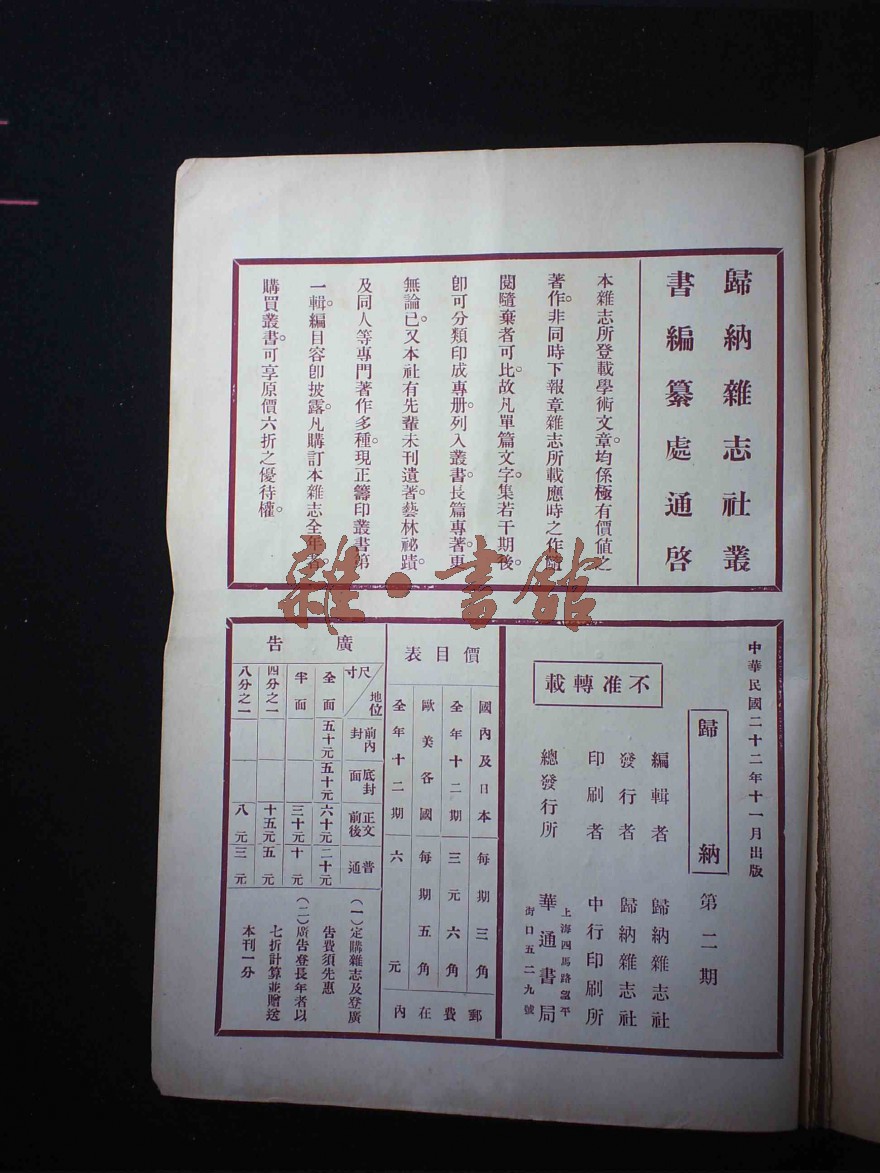 歸納雜志社叢
書編纂處通啓
本雜志所登載學術文章。均係極有價値之
著作。非同時下報章雜志所載應時之作。隨
閱隨棄者可比。故凡單篇文字。集若干期後。
卽可分類印成專册。列入叢書。長篇專著。更
無論已。又本社有先輩未刊遺著。藝林祕蹟。
及同人等專門著作多種。現正籌印叢書第
一輯。編目容卽披露。凡購訂本雜志全年者。
購買叢書。可享原價六折之優待權。
雜·書館
中華民國二十二年十一月出版
歸納 第二期
不准轉載
編輯者 歸納雜志社
發行者 歸納雜志社
印刷者 中行印刷所
總發行所 華通書局
上海四馬路望平
街口五二九號
價目表
國內及日本 每期三角
全年十二期 三元六角
歐美各國 每期五角
全年十二期 六元
郵費在內
廣告
尺寸 地位 前內封 底封面 正文前後 普通
全面 五十元 五十元 六十元 二十元
半面 三十元 十元
四分之一 十五元 五元
八分之一 八元 三元
(一)定購雜志及登廣
告費須先惠
(二)廣告登長年者以
七折計算並贈送
本刊一分